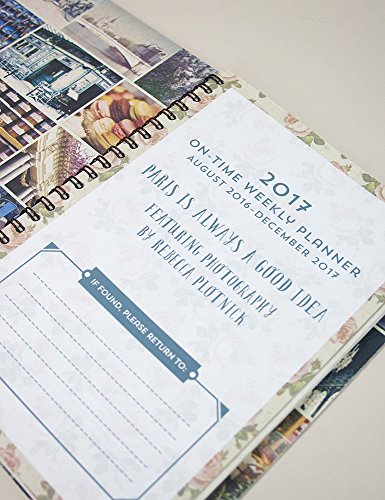 2017
ON-TIME WEEKLY PLANNER
AUGUST 2016-DECEMBER 2017
PARIS IS ALWAYS A GOOD IDEA
FEATURING PHOTOGRAPHY
BY REBECCA PLOTNICK
IF FOUND, PLEASE RETURN TO: